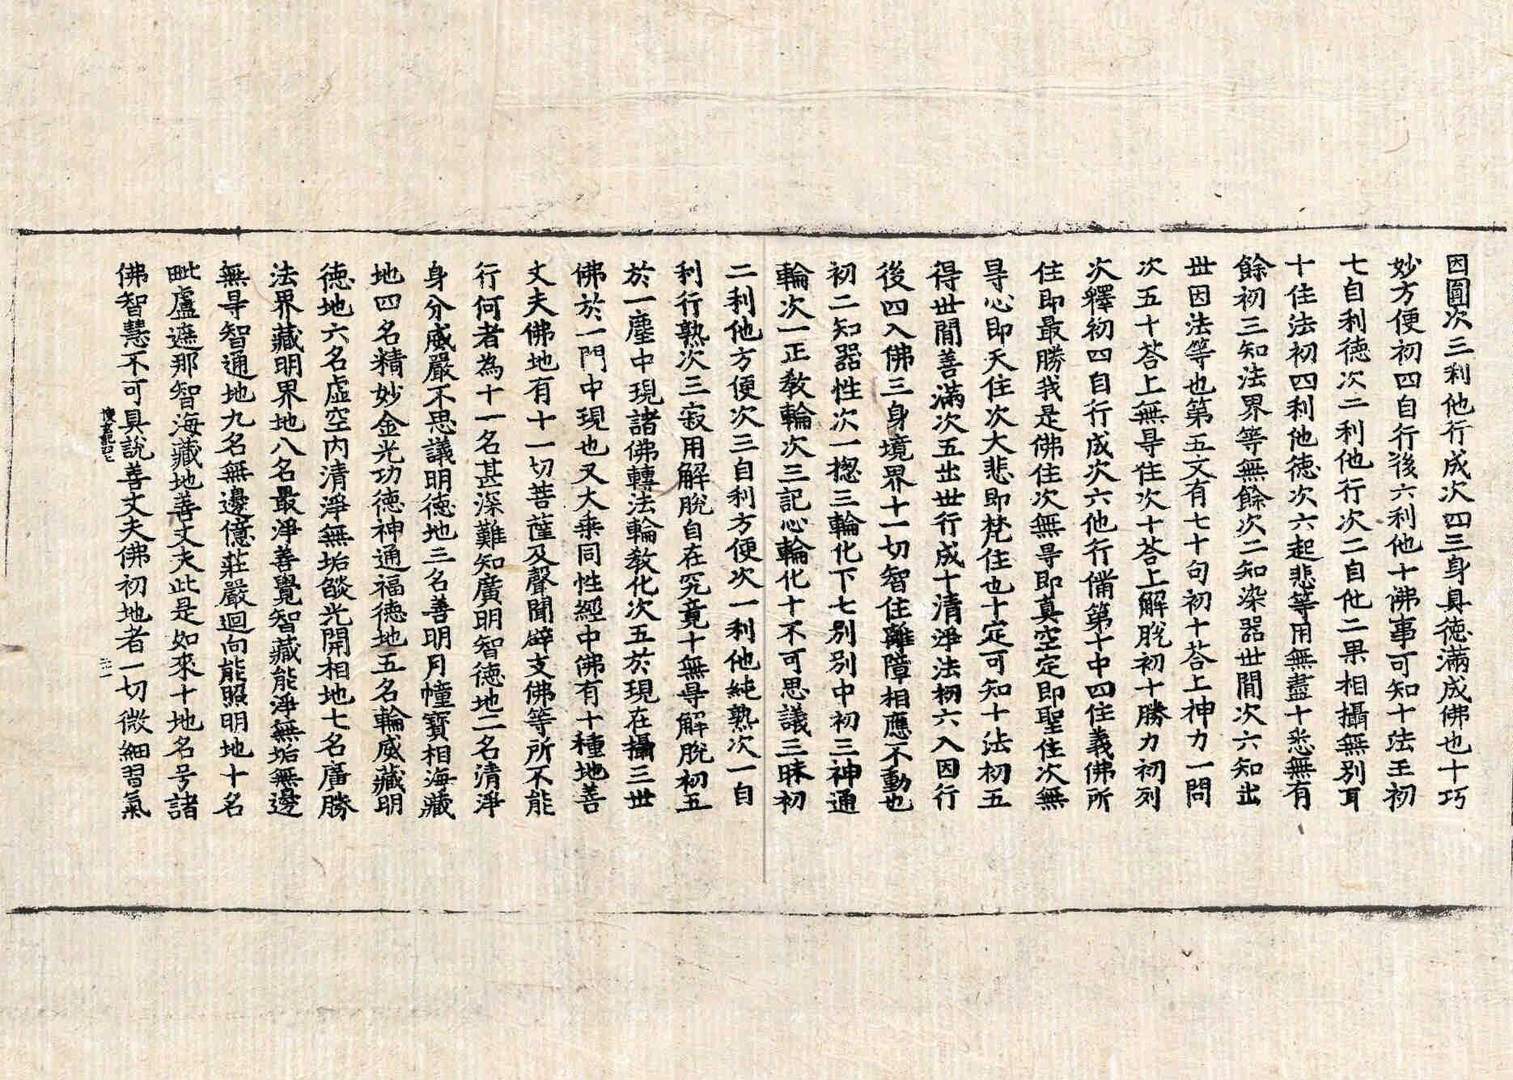 因圓次三利他行成次四三身具德滿成佛也十巧
妙方便初四自行後六利他十佛事可知十法王初
七自利德次二利他行次二自他二果相攝無別耳
十住法初四利他德次六起悲等用無盡十悉無有
餘初三知法界等無餘次二知染器世間次六知出
世因法等也第五文有七十句初十荅上神力一問
次五十荅上無导住次十荅上解脫初十勝力初列
次釋初四自行成次六他行備第十中四住義佛所
住即最勝我是佛住次無导即真空定即聖住次無
导心即天住次大悲即梵住也十定可知十法初五
得世間善滿次五出世行成十清淨法初六入因行
後四入佛三身境界十一切智住離障相應不動也
初二知器性次一揔三輪化下七別別中初三神通
輪次一正教輪次三記心輪化十不可思議三昧初
二利他方便次三自利方便次一利他純熟次一自
利行熟次三寂用解脫自在究竟十無导解脫初五
於一塵中現諸佛轉法輪教化次五於現在攝三世
佛於一門中現也又大乘同性經中佛有十種地善
丈夫佛地有十一切菩薩及聲聞辟支佛等所不能
行何者為十一名甚深難知廣明智德地二名清淨
身分威嚴不思議明德地三名善明月幢寶相海藏
地四名精妙金光功德神通福德地五名輪威藏明
德地六名虛空內清淨無垢燄光開相地七名廣勝
法界藏明界地八名最淨善覺智藏能淨無垢無邊
無导智通地九名無邊億莊嚴迴向能照明地十名
毗盧遮那智海藏地善丈夫此是如來十地名号諸
佛智慧不可具說善丈夫佛初地者一切微細習氣